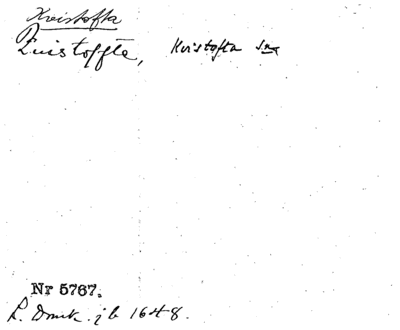 Kristofta
Quistoffte, Kristofta sn
Nr 5767.
L. Dmk. jb 1648.